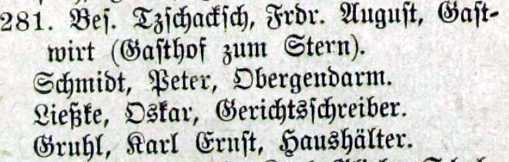 281. Bes. Tzschacksch, Frdr. August, Gast-
wirt (Gasthof zum Stern).
Schmidt, Peter, Obergendarm.
Ließke, Oskar, Gerichtsschreiber.
Gruhl, Karl Ernst, Haushälter.